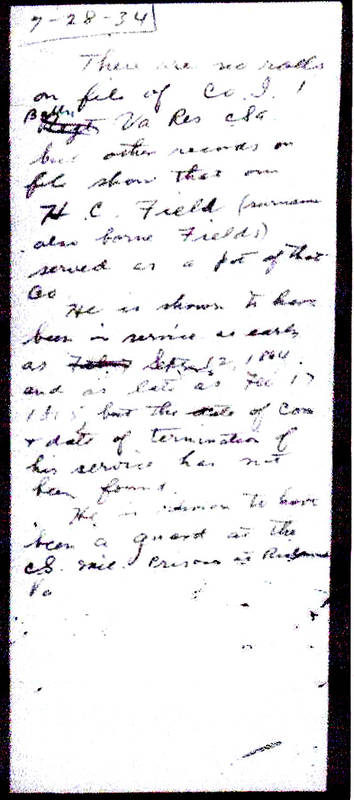 7-28-34
There are no rolls
on file of Co. I, 1
Battn Va Res CSA
but other records on
file show that one
H. C. Field (surname
also borne Fields)
served as a pvt of that
Co
He is shown to have
been in service as early
as Sept 2, 1864
and as late as Feb 17
1865 but the date of com
& date of termination of
his service has not
been found.
He is shown to have
been a guard at the
CS. Mil. Prison at Richmond
Va